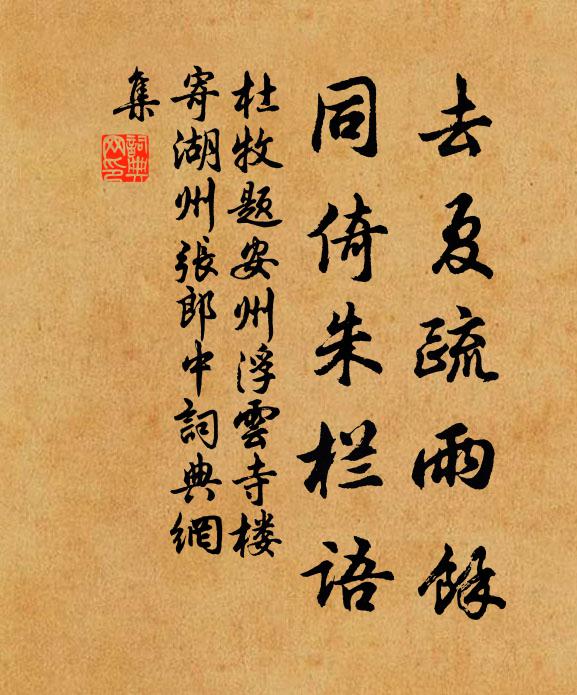 去夏疏雨餘
同倚朱栏語
杜牧题安州浮雲寺楼
寄湖州張郎中詞典網
集
詞典